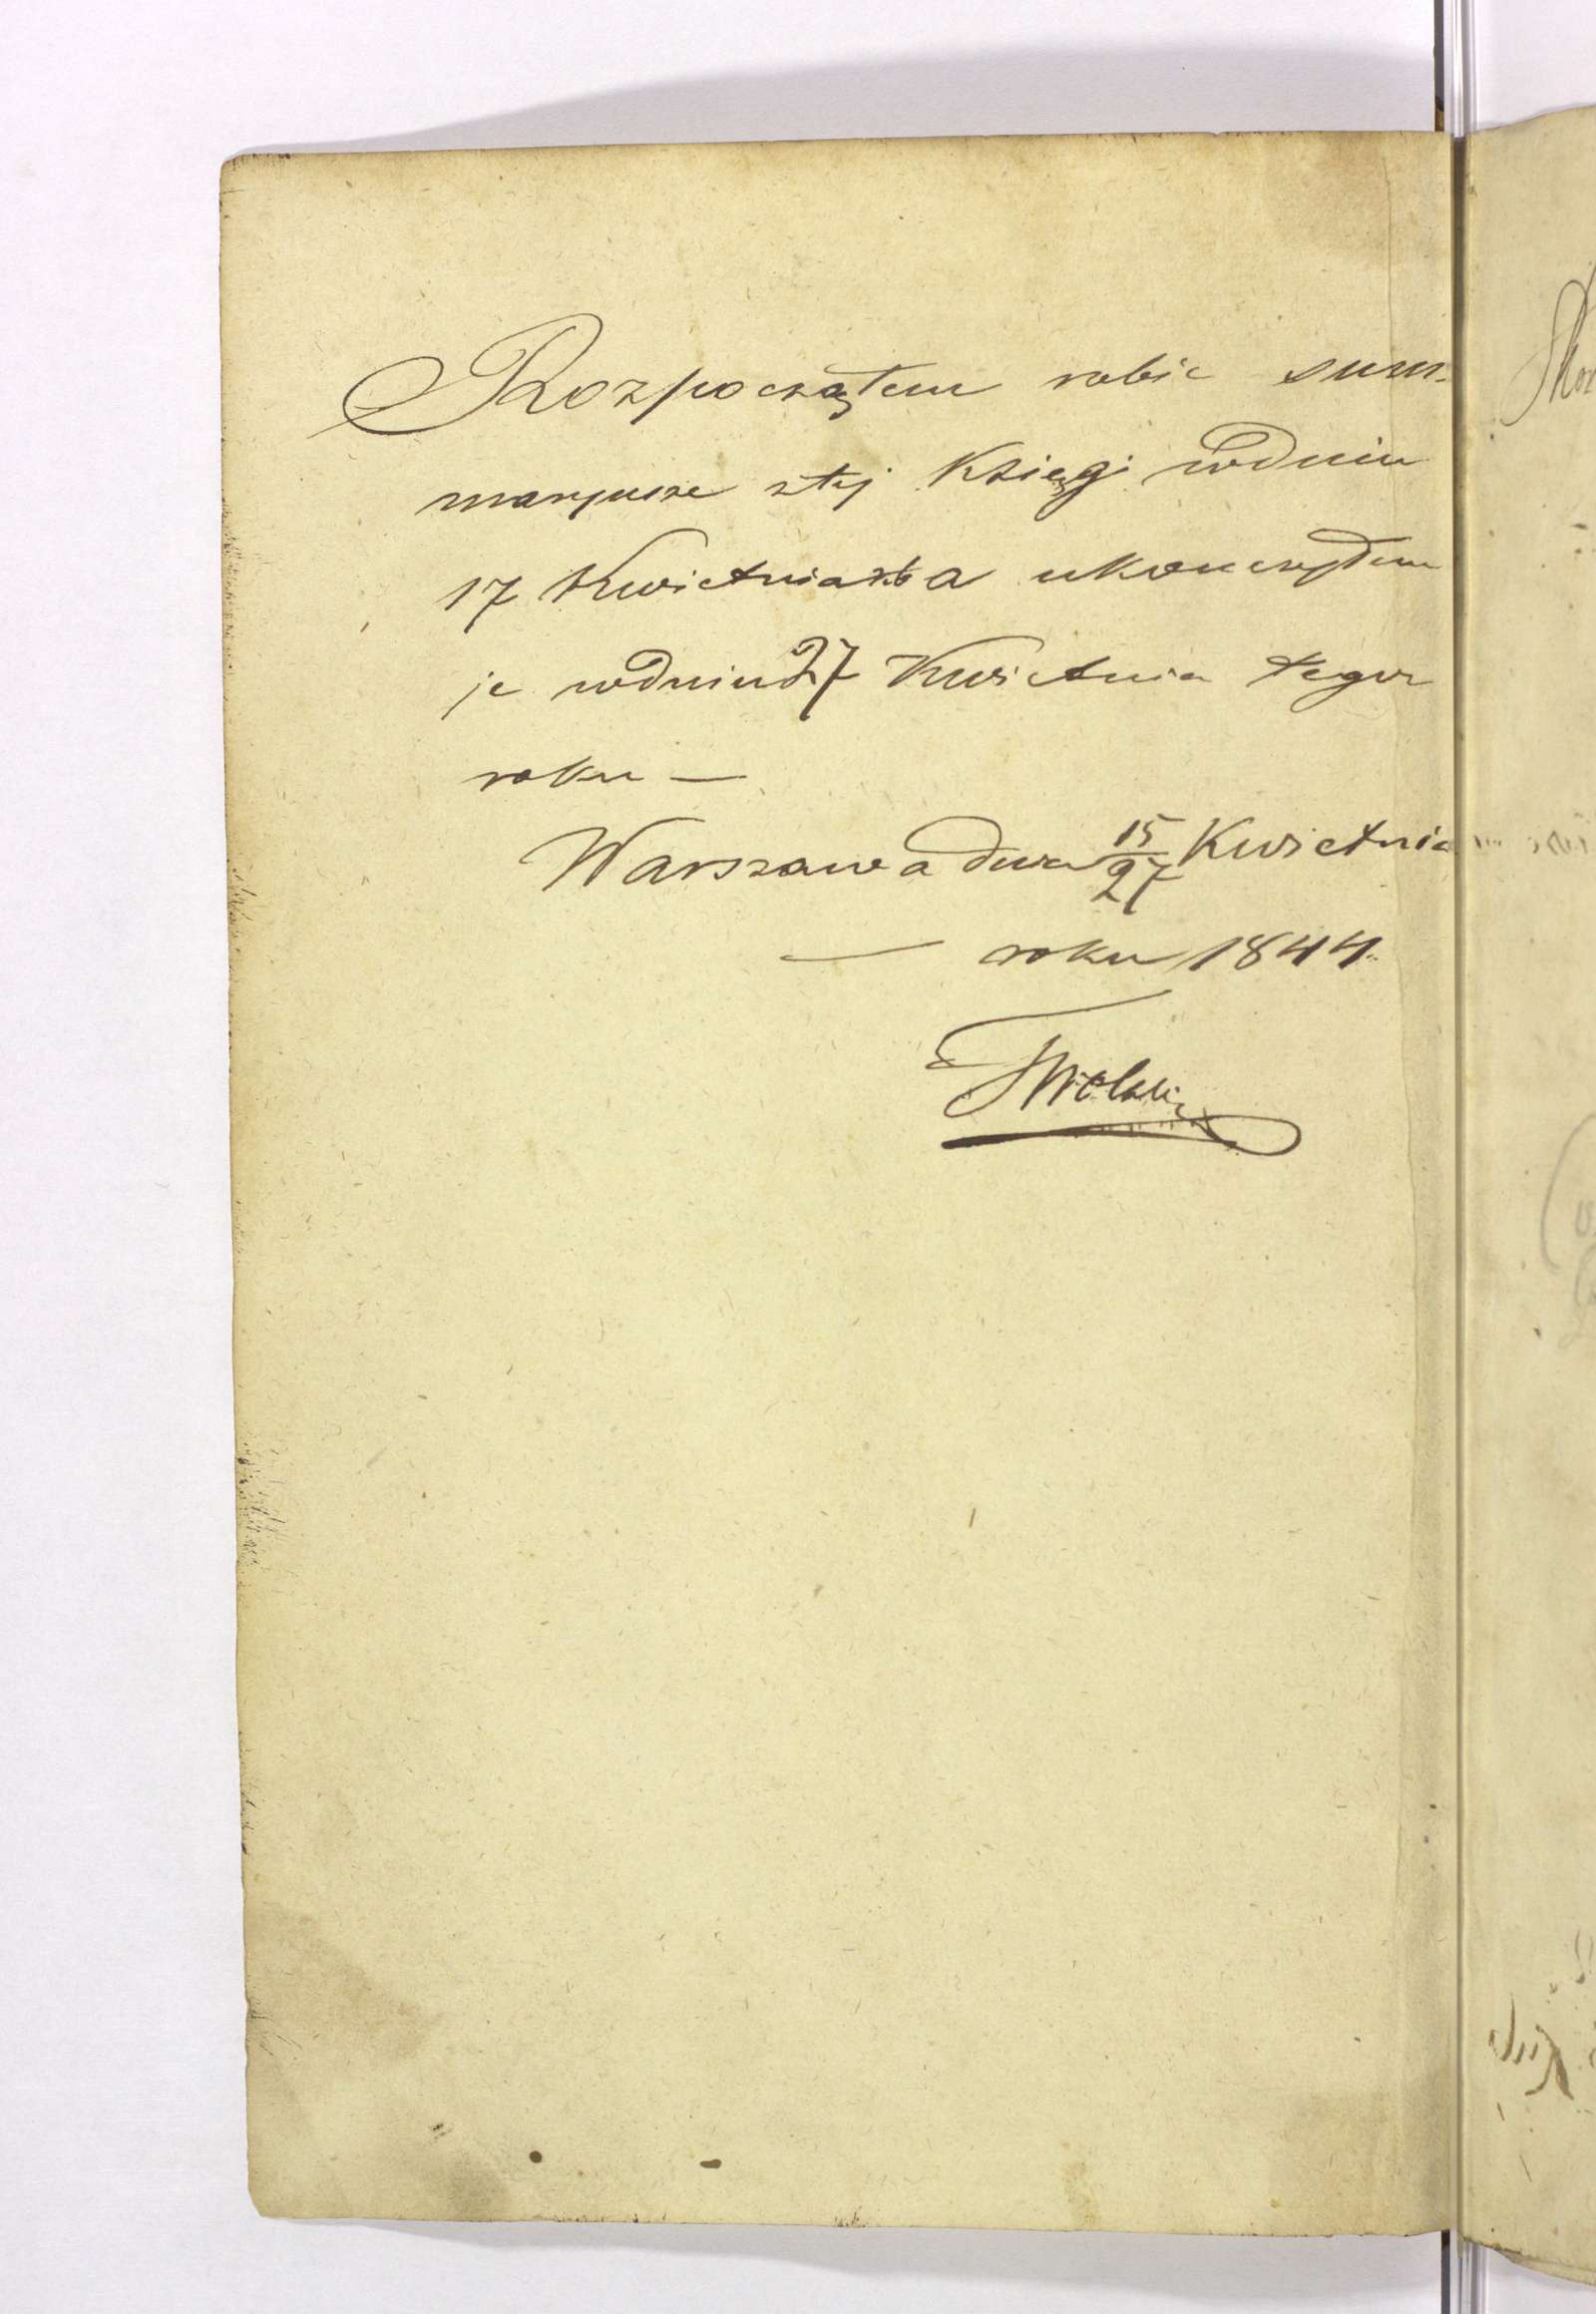 Rozpocząłem robic sum-
maryusze ztej Księgi wdniu
17 Kwietnia a ukonczyłem
je wdniu 27 Kwietnia tegoz
roku —
Warszawa dnia 15/27 Kwietnia
— roku 1844.